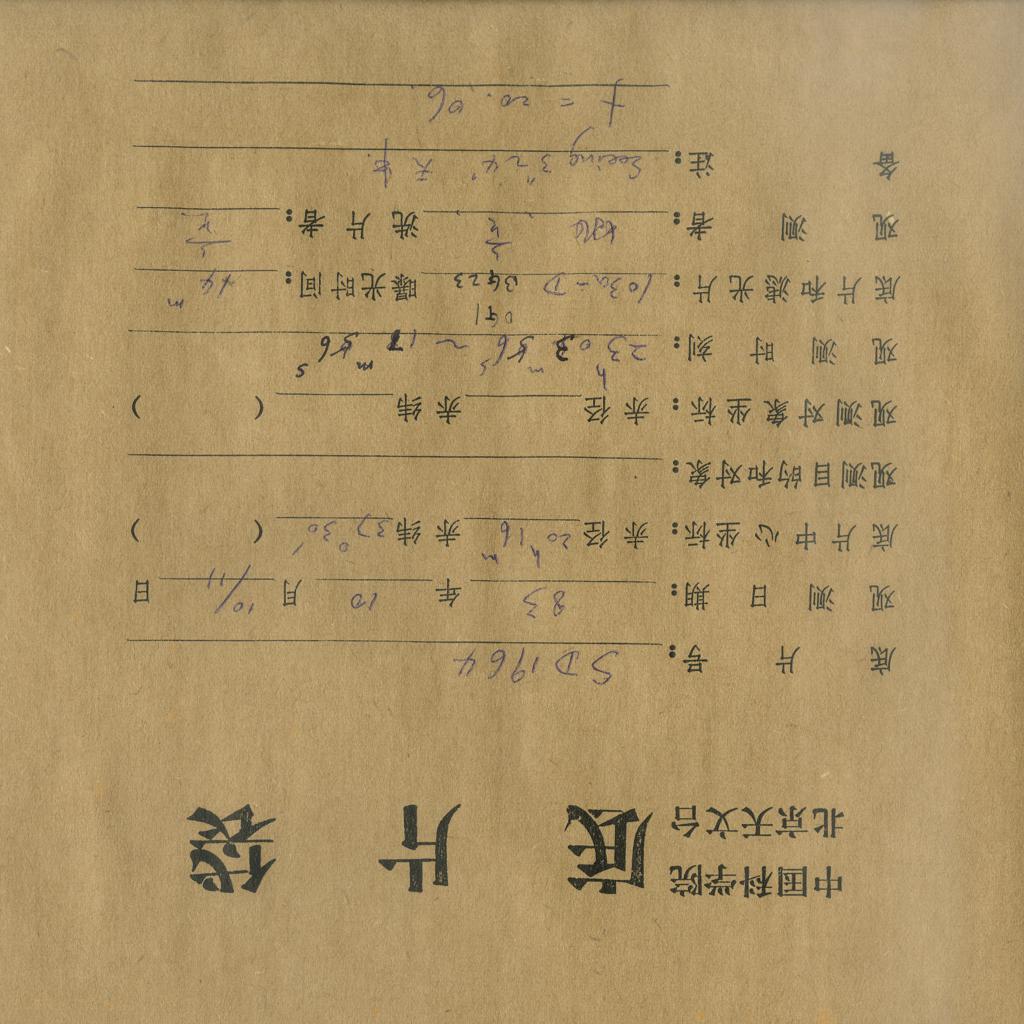 中国科学院
北京天文台 底片袋
底片号: SD1964
观测日期: 83 年 10 月 10/11 日
底片中心坐标: 赤径 20h 16m 赤纬 37°30′ ( )
观测目的和对象:
观测对象坐标: 赤径 赤纬 ( )
观测时刻: 23h 03m 56s ~ 17m 56s
041
底片和滤光片: 103a-D 3423 曝光时间: 14m
观测者: 洗片者:
备注: Seeing 3″~4″
t = 20.06